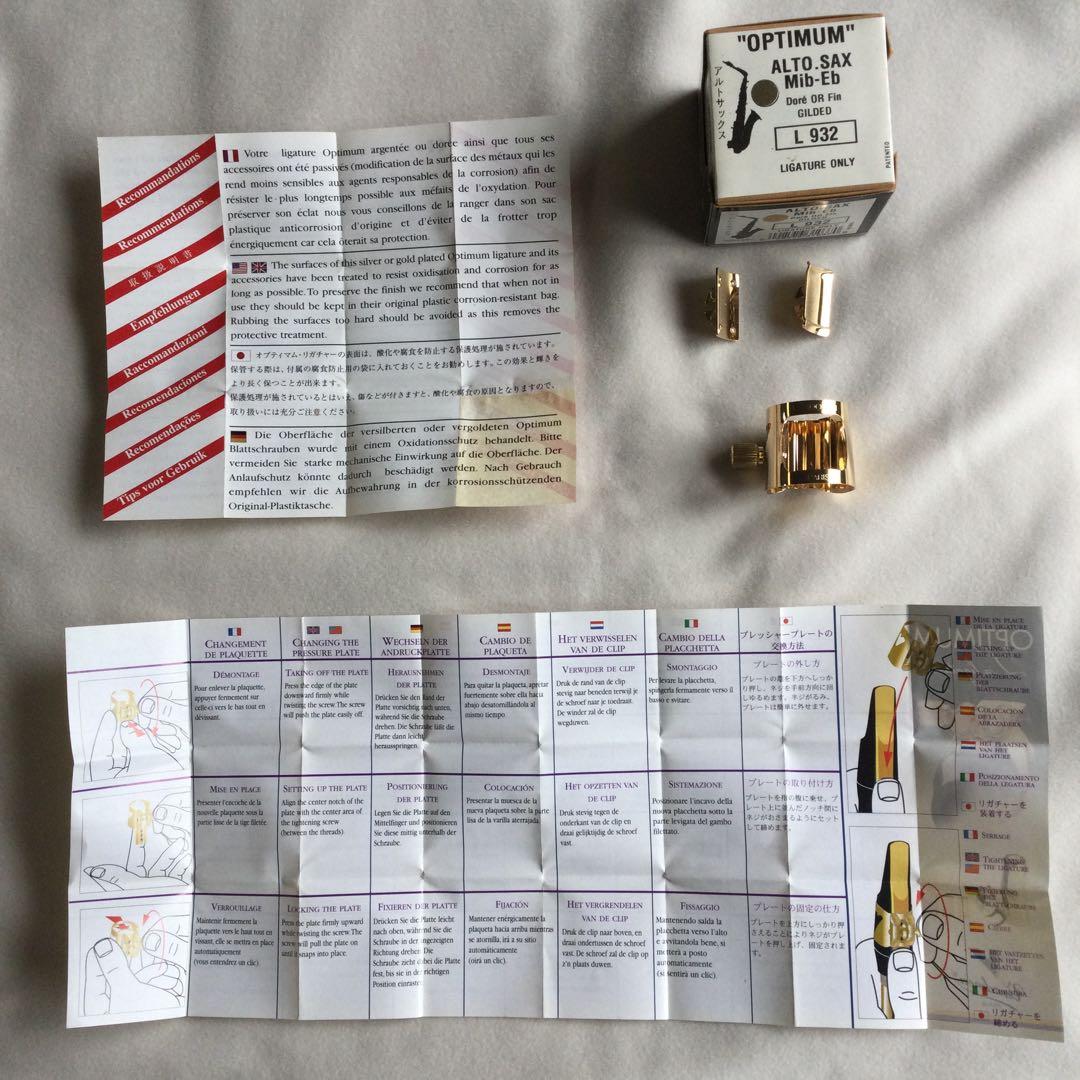 "OPTIMUM"
ALTO.SAX
Mib-Eb
Doré OR Fin
GILDED
L 932
LIGATURE ONLY
アルトサックス
PATENTED
ALTO.SAX
Mib-Eb
L 932
Recommandations
Recommendations
取扱説明書
Empfehlungen
Raccomandazioni
Recomendaciones
Recomendações
Tips voor Gebruik
Votre ligature Optimum argentée ou dorée ainsi que tous ses
accessoires ont été passivés (modification de la surface des métaux qui les
rend moins sensibles aux agents responsables de la corrosion) afin de
résister le plus longtemps possible aux méfaits de l'oxydation. Pour
préserver son éclat nous vous conseillons de la ranger dans son sac
plastique anticorrosion d'origine et d'éviter de la frotter trop
énergiquement car cela ôterait sa protection.
The surfaces of this silver or gold plated Optimum ligature and its
accessories have been treated to resist oxidisation and corrosion for as
long as possible. To preserve the finish we recommend that when not in
use they should be kept in their original plastic corrosion-resistant bag.
Rubbing the surfaces too hard should be avoided as this removes the
protective treatment.
オプティマム・リガチャーの表面は、酸化や腐食を防止する保護処理が施されています。
保管する際は、付属の腐食防止用の袋に入れておくことをお勧めします。この効果と輝きを
より長く保つことが出来ます。
保護処理が施されているとはいえ、傷などが付きますと、酸化や腐食の原因となりますので、
取り扱いには充分ご注意ください。
Die Oberfläche der versilberten oder vergoldeten Optimum
Blattschrauben wurde mit einem Oxidationsschutz behandelt. Bitte
vermeiden Sie starke mechanische Einwirkung auf die Oberfläche. Der
Anlaufschutz könnte dadurch beschädigt werden. Nach Gebrauch
empfehlen wir die Aufbewahrung in der korrosionsschützenden
Original-Plastiktasche.
CHANGEMENT
DE PLAQUETTE
DÉMONTAGE
Pour enlever la plaquette,
appuyer fermement sur
celle-ci vers le bas tout en
dévissant.
MISE EN PLACE
Présenter l'encoche de la
nouvelle plaquette sous la
partie lisse de la tige filetée.
VERROUILLAGE
Maintenir fermement la
plaquette vers le haut tout en
vissant, elle se mettra en place
automatiquement
(vous entendrez un clic).
CHANGING THE
PRESSURE PLATE
TAKING OFF THE PLATE
Press the edge of the plate
downward firmly while
twisting the screw. The screw
will push the plate easily off.
SETTING UP THE PLATE
Align the center notch of the
plate with the center area of
the tightening screw
(between the threads).
LOCKING THE PLATE
Press the plate firmly upward
while twisting the screw. The
screw will pull the plate on
until it snaps into place.
WECHSELN DER
ANDRUCKPLATTE
HERAUSNEHMEN
DER PLATTE
Drücken Sie den Rand der
Platte vorsichtig nach unten,
während Sie die Schraube
drehen. Die Schraube läßt die
Platte dann leicht
herausspringen.
POSITIONIERUNG
DER PLATTE
Legen Sie die Platte auf den
Mittelfinger und positionieren
Sie diese mittig unterhalb der
Schraube.
FIXIEREN DER PLATTE
Drücken Sie die Platte leicht
nach oben, während Sie die
Schraube in der angezeigten
Richtung drehen. Die
Schraube zieht dabei die Platte
fest, bis sie in der richtigen
Position einrastet.
CAMBIO DE
PLAQUETA
DESMONTAJE
Para quitar la plaqueta, apretar
fuertemente sobre ella hacia
abajo desatornillándola al
mismo tiempo.
COLOCACIÓN
Presentar la muesca de la
nueva plaqueta sobre la parte
lisa de la varilla aterrajada.
FIJACIÓN
Mantener enérgicamente la
plaqueta hacia arriba mientras
se atornilla, irá a su sitio
automáticamente
(oirá un clic).
HET VERWISSELEN
VAN DE CLIP
VERWIJDER DE CLIP
Druk de rand van de clip
stevig naar beneden terwijl je
de schroef naar je toedraait.
De winder zal de clip
wegduwen.
HET OPZETTEN VAN
DE CLIP
Druk stevig tegen de
onderkant van de clip en
draai gelijktijdig de schroef
vast.
HET VERGRENDELEN
VAN DE CLIP
Druk de clip naar boven, en
draai ondertussen de schroef
vast. De schroef zal de clip op
z'n plaats duwen.
CAMBIO DELLA
PLACCHETTA
SMONTAGGIO
Per levare la placchetta,
spingerla fermamente verso il
basso e svitare.
SISTEMAZIONE
Posizionare l'incavo della
nuova placchetta sotto la
parte levigata del gambo
filettato.
FISSAGGIO
Mantenendo salda la
placchetta verso l'alto
e avvitandola bene, si
metterà a posto
automaticamente
(si sentirà un clic).
プレッシャープレートの
交換方法
プレートの外し方
プレートの端を下方へしっか
り押し、ネジを手前方向に回
しゆるめます。ネジがゆるみ、
プレートは簡単に外せます。
プレートの取り付け方
プレートを指の腹に乗せ、プ
レート上に並んだノッチ間に
ネジがおさまるようにセット
して締めます。
プレートの固定の仕方
プレートを上方にしっかり押
さえることによりネジがプレ
ートを押し上げ、固定されま
す。
MISE EN PLACE
DE LA LIGATURE
SETTING UP
THE LIGATURE
PLATZIERUNG DER
BLATTSCHRAUBE
COLOCACIÓN
DE LA
ABRAZADERA
HET PLAATSEN
VAN HET
LIGATURE
POSIZIONAMENTO
DELLA LEGATURA
リガチャーを
装着する
SERRAGE
TIGHTENING
THE LIGATURE
FIXIERUNG
DER
BLATTSCHRAUBE
CIERRE
HET VASTZETTEN
VAN HET
LIGATURE
CHIUSURA
リガチャーを
締める